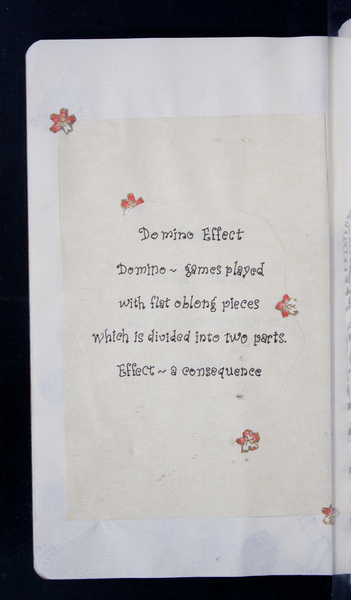 Domino Effect
Domino ~ games played
with flat oblong pieces
which is divided into two parts.
Effect ~ a consequence